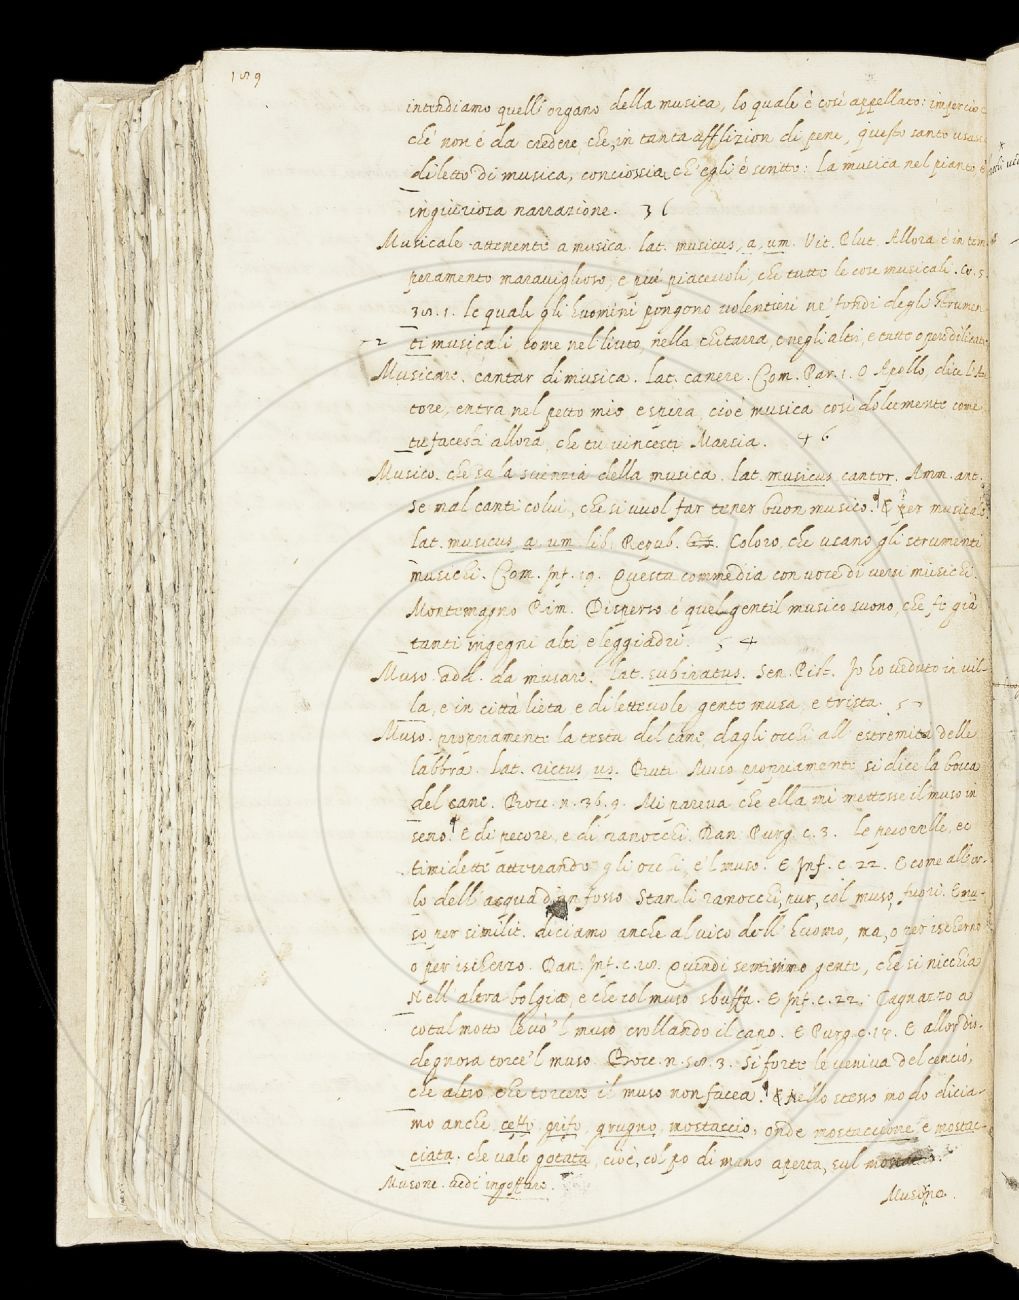 189
intendiamo quell'organo della musica, lo quale è così appellato: impercioc
chè non è da credere, che, in tanta afflizion di pene, questo santo usasse
diletto di musica, conciossia ch'egli è scritto: La musica nel pianto, è
ingiuriosa narrazione. 36
Musicale. attenente a musica. lat. musicus, a, um. Vit. Plut. Allora è in tem-
peramento maraviglioso, e più piacevoli, che tutte le cose musicali. Cr. 5.
38. 1. Le quali gli huomini pongono volentieri ne' fondi degli strumen
ti musicali come nel liuto, nella chitarra, e negli altri, e tutte
Musicare. cantar di musica. lat. canere. Com. Par. 1. O Apollo, dice l'Au
tore, entra nel petto mio e spira, cioè musica così dolcemente come
tu facesti allora, che tu vincesti Marsia. 46
Musico. che sa la scienzia della musica. lat. musicus cantor. Amm. ant.
Se mal canti colui, che si vuol far tener buon musico. E per musicale
lat. musicus, a, um. lib. Repub. Coloro, che usano gli strumenti
musichi. Com. Inf. 19. Questa commedia con voce di versi musichi.
Montemagno Rim. Disperso è quel gentil musico suono, che fe già
tanti ingegni alti e leggiadri. 54
Muso. add. da musare. lat. subiratus. Sen. Pist. Io ho veduto in vil-
la, e in città lieta e dilettevole gente musa, e trista. 57
Muso. propriamente la testa del cane, dagli occhi all'estremità delle
labbra. lat. rictus, us. Buti Muso propriamente si dice la bocca
del cane. Bocc. n. 36. 9. Mi pareva che ella mi mettesse il muso in
seno. E di pecore, e di ranocchi. Dan. Purg. c. 3. Le pecorelle, ec
timidette atterrando gli occhi, e 'l muso. E Inf. c. 22. E come all'or-
lo dell'acqua d'un fosso Stan li ranocchi, pur, col muso, fuori. E mu-
so per similit. diciamo anche al viso dell'huomo, ma, o per ischerno
o per ischerzo. Dan. Inf. c. 18. Quindi sentimmo gente, che si nicchia
Nell'altra bolgia, e che col muso sbuffa. E Inf. c. 22. Cagnazzo a
cotal motto levò 'l muso crollando il capo. E Purg. c. 14. E allor dis-
degnosa torce 'l muso. Bocc. n. 58. 3. Si forte le veniva del cencio,
che altro che torcere il muso non facea. E nello stesso modo dicia-
mo anche ceffo grifo, grugno, mostaccio, onde mostaccione, e mostac-
ciata. che vale gotata, cioè, colpo di mano aperta, sul
Musone. vedi ingoffare.
Musone.